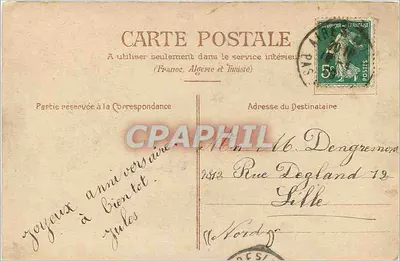 CARTE POSTALE
A utiliser seulement dans le service intérieur
(France, Algérie et Tunisie)
5c
POSTES
PAS
Partie réservée à la Correspondance
Adresse du Destinataire
CPAPHIL
Joyeux anniversaire.
à bientot.
Jules
M. Dengremon
Rue Degland 12
Lille
(Nord)